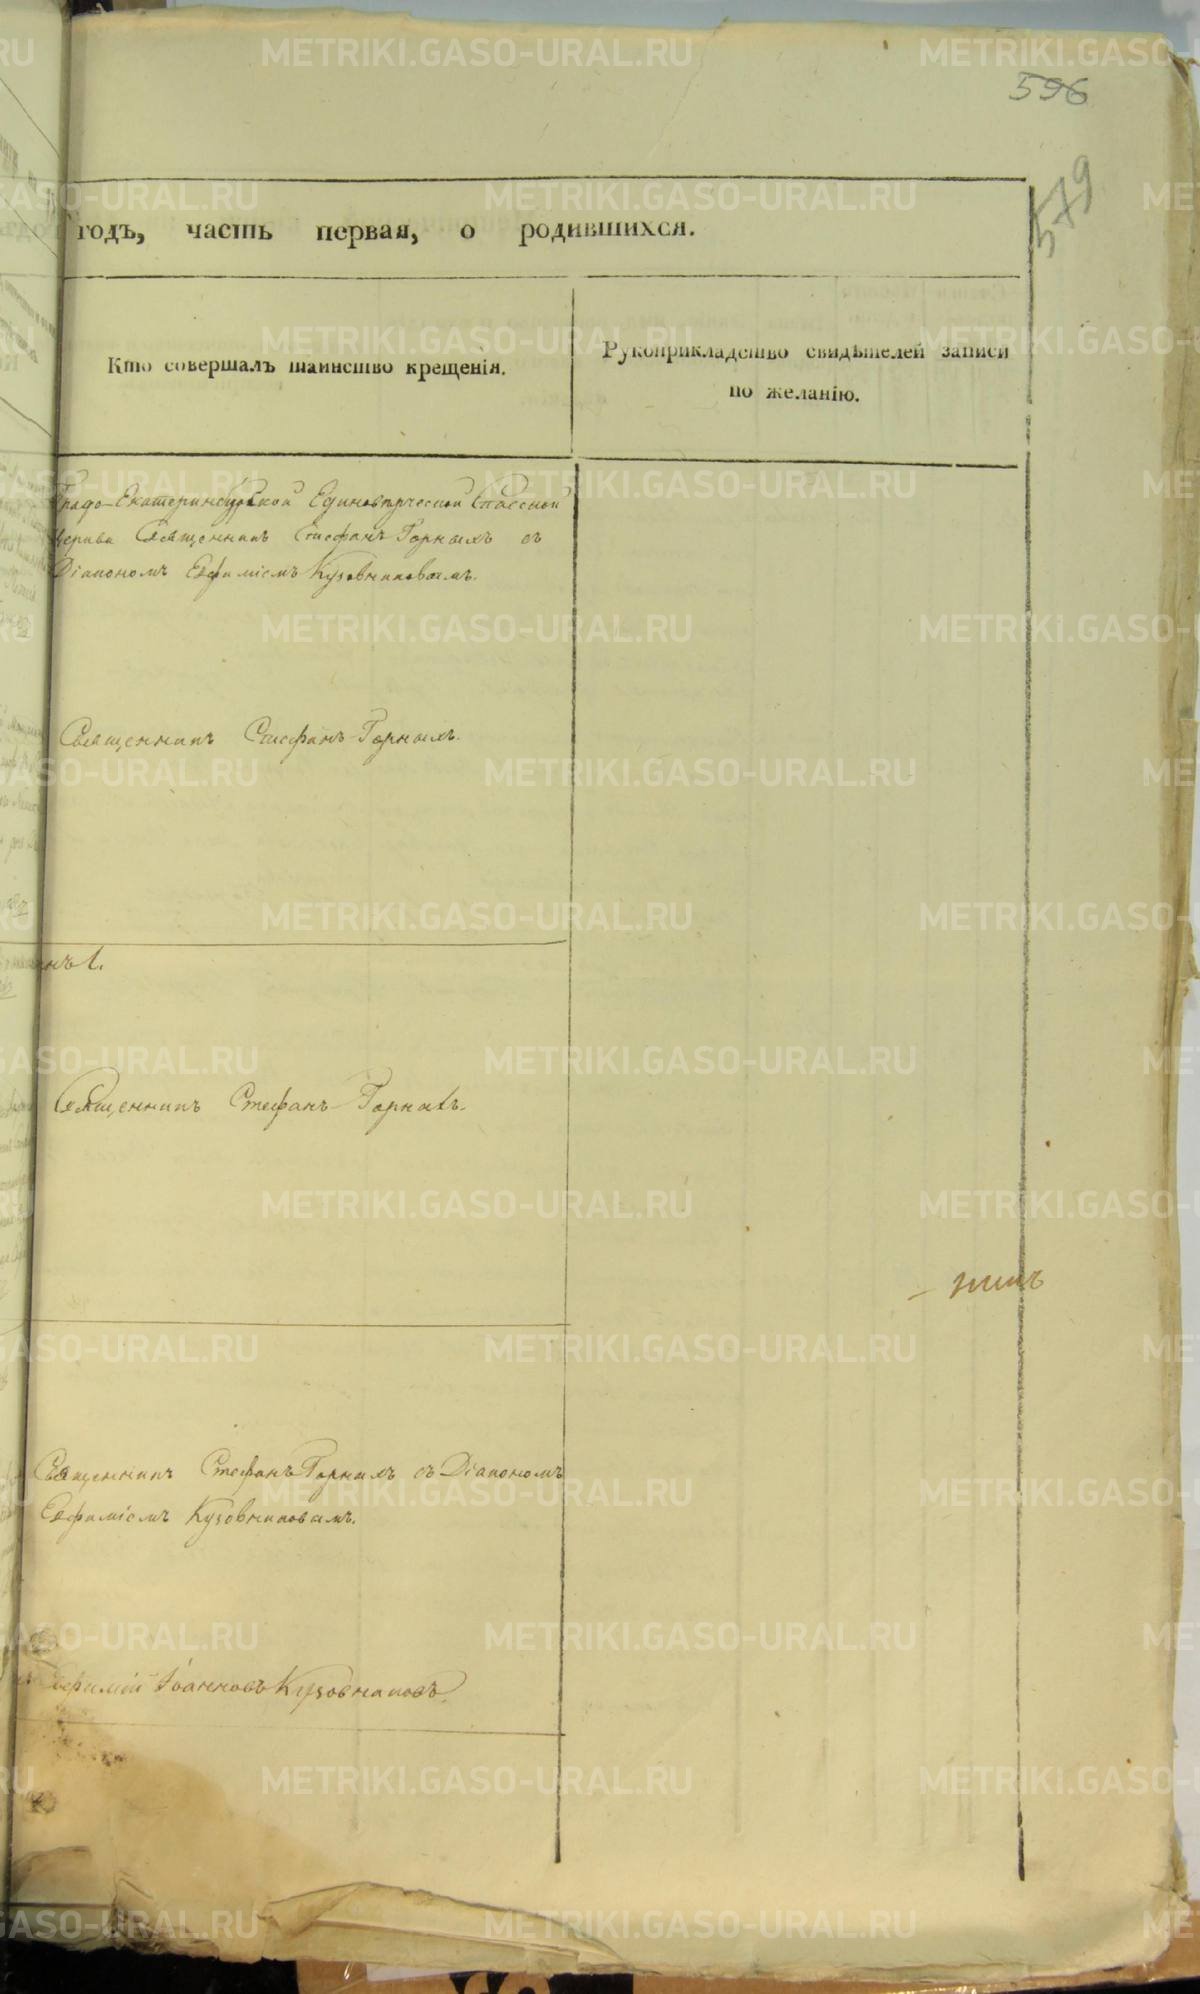 596
579
годъ, часть первая, о родившихся.
Кто совершалъ таинство крещенія.
Рукоприкладство свидѣтелей записи
по желанію.
Градо-Екатеринбургской Единовѣрческой Спасской
церкви Священникъ Стефанъ Горныхъ съ
Діакономъ Евфиміемъ Кузовниковымъ.
Священникъ Стефанъ Горныхъ.
Священникъ Стефанъ Горныхъ.
Священникъ Стефанъ Горныхъ съ Діакономъ
Евфиміемъ Кузовниковымъ.
Евфимій Іоанновъ Кузовниковъ.
METRIKI.GASO-URAL.RU